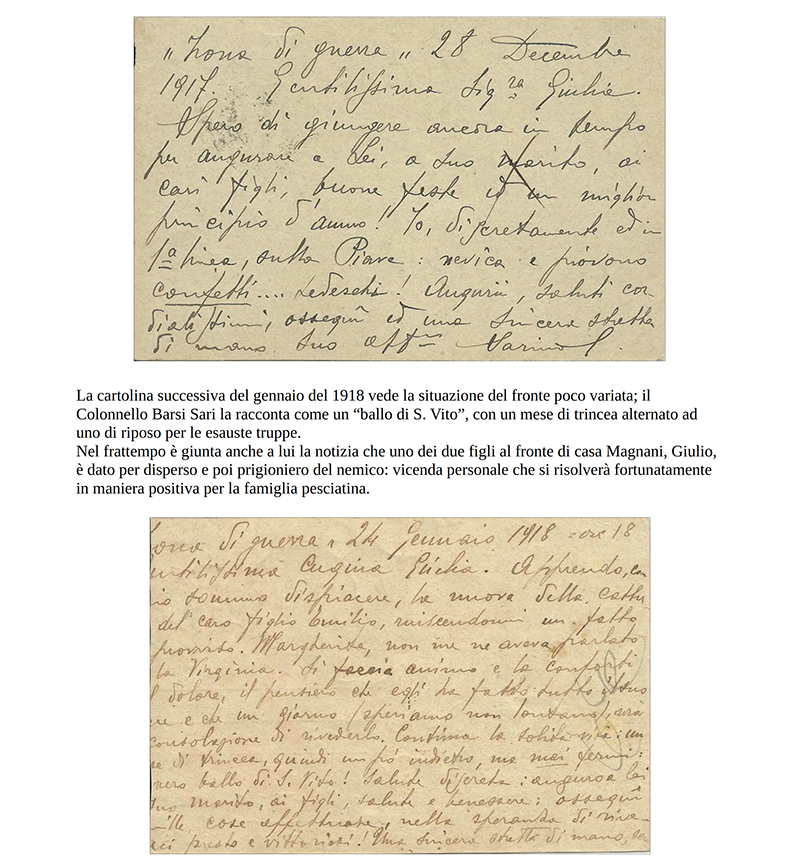 „ Zona di guerra „ 28 Decembre
1917. Gentilissima Sig.ra Giulia.
Spero di giungere ancora in tempo
per augurare a Lei, a suo marito, ai
cari figli, buone feste ed un miglior
principio d'anno! Io, discretamente ed in
1a linea, sulla Piave: nevica e piovono
confetti.... tedeschi! Augurii, saluti cor
dialissimi, ossequi ed una sincera stretta
di mano. Suo aff
La cartolina successiva del gennaio del 1918 vede la situazione del fronte poco variata; il
Colonnello Barsi Sari la racconta come un “ballo di S. Vito”, con un mese di trincea alternato ad
uno di riposo per le esauste truppe.
Nel frattempo è giunta anche a lui la notizia che uno dei due figli al fronte di casa Magnani, Giulio,
è dato per disperso e poi prigioniero del nemico: vicenda personale che si risolverà fortunatamente
in maniera positiva per la famiglia pesciatina.
ona di guerra „ 24 Gennaio 1918 = ore 18
ntilissima Cugina Giulia. Apprendo, con
io sommo dispiacere, la nuova della cattu
del caro figlio riuscendomi un fatto
Margherita, non me ne aveva parlato
la Virginia. Si faccia animo e la conforti
l dolore, il pensiero che egli ha fatto tutto il suo
re e che un giorno (speriamo non lontano), avrà
consolazione di rivederlo. Continua la solita vita: un
se di trincea, quindi un pò indietro, ma mai fermi:
vero ballo di S. Vito! Salute discreta: auguro a lei
suo marito, ai figli, salute e benessere: ossequi
mille cose affettuose, nella speranza di rive
ci presto e vittoriosi! Una sincera stretta di mano,